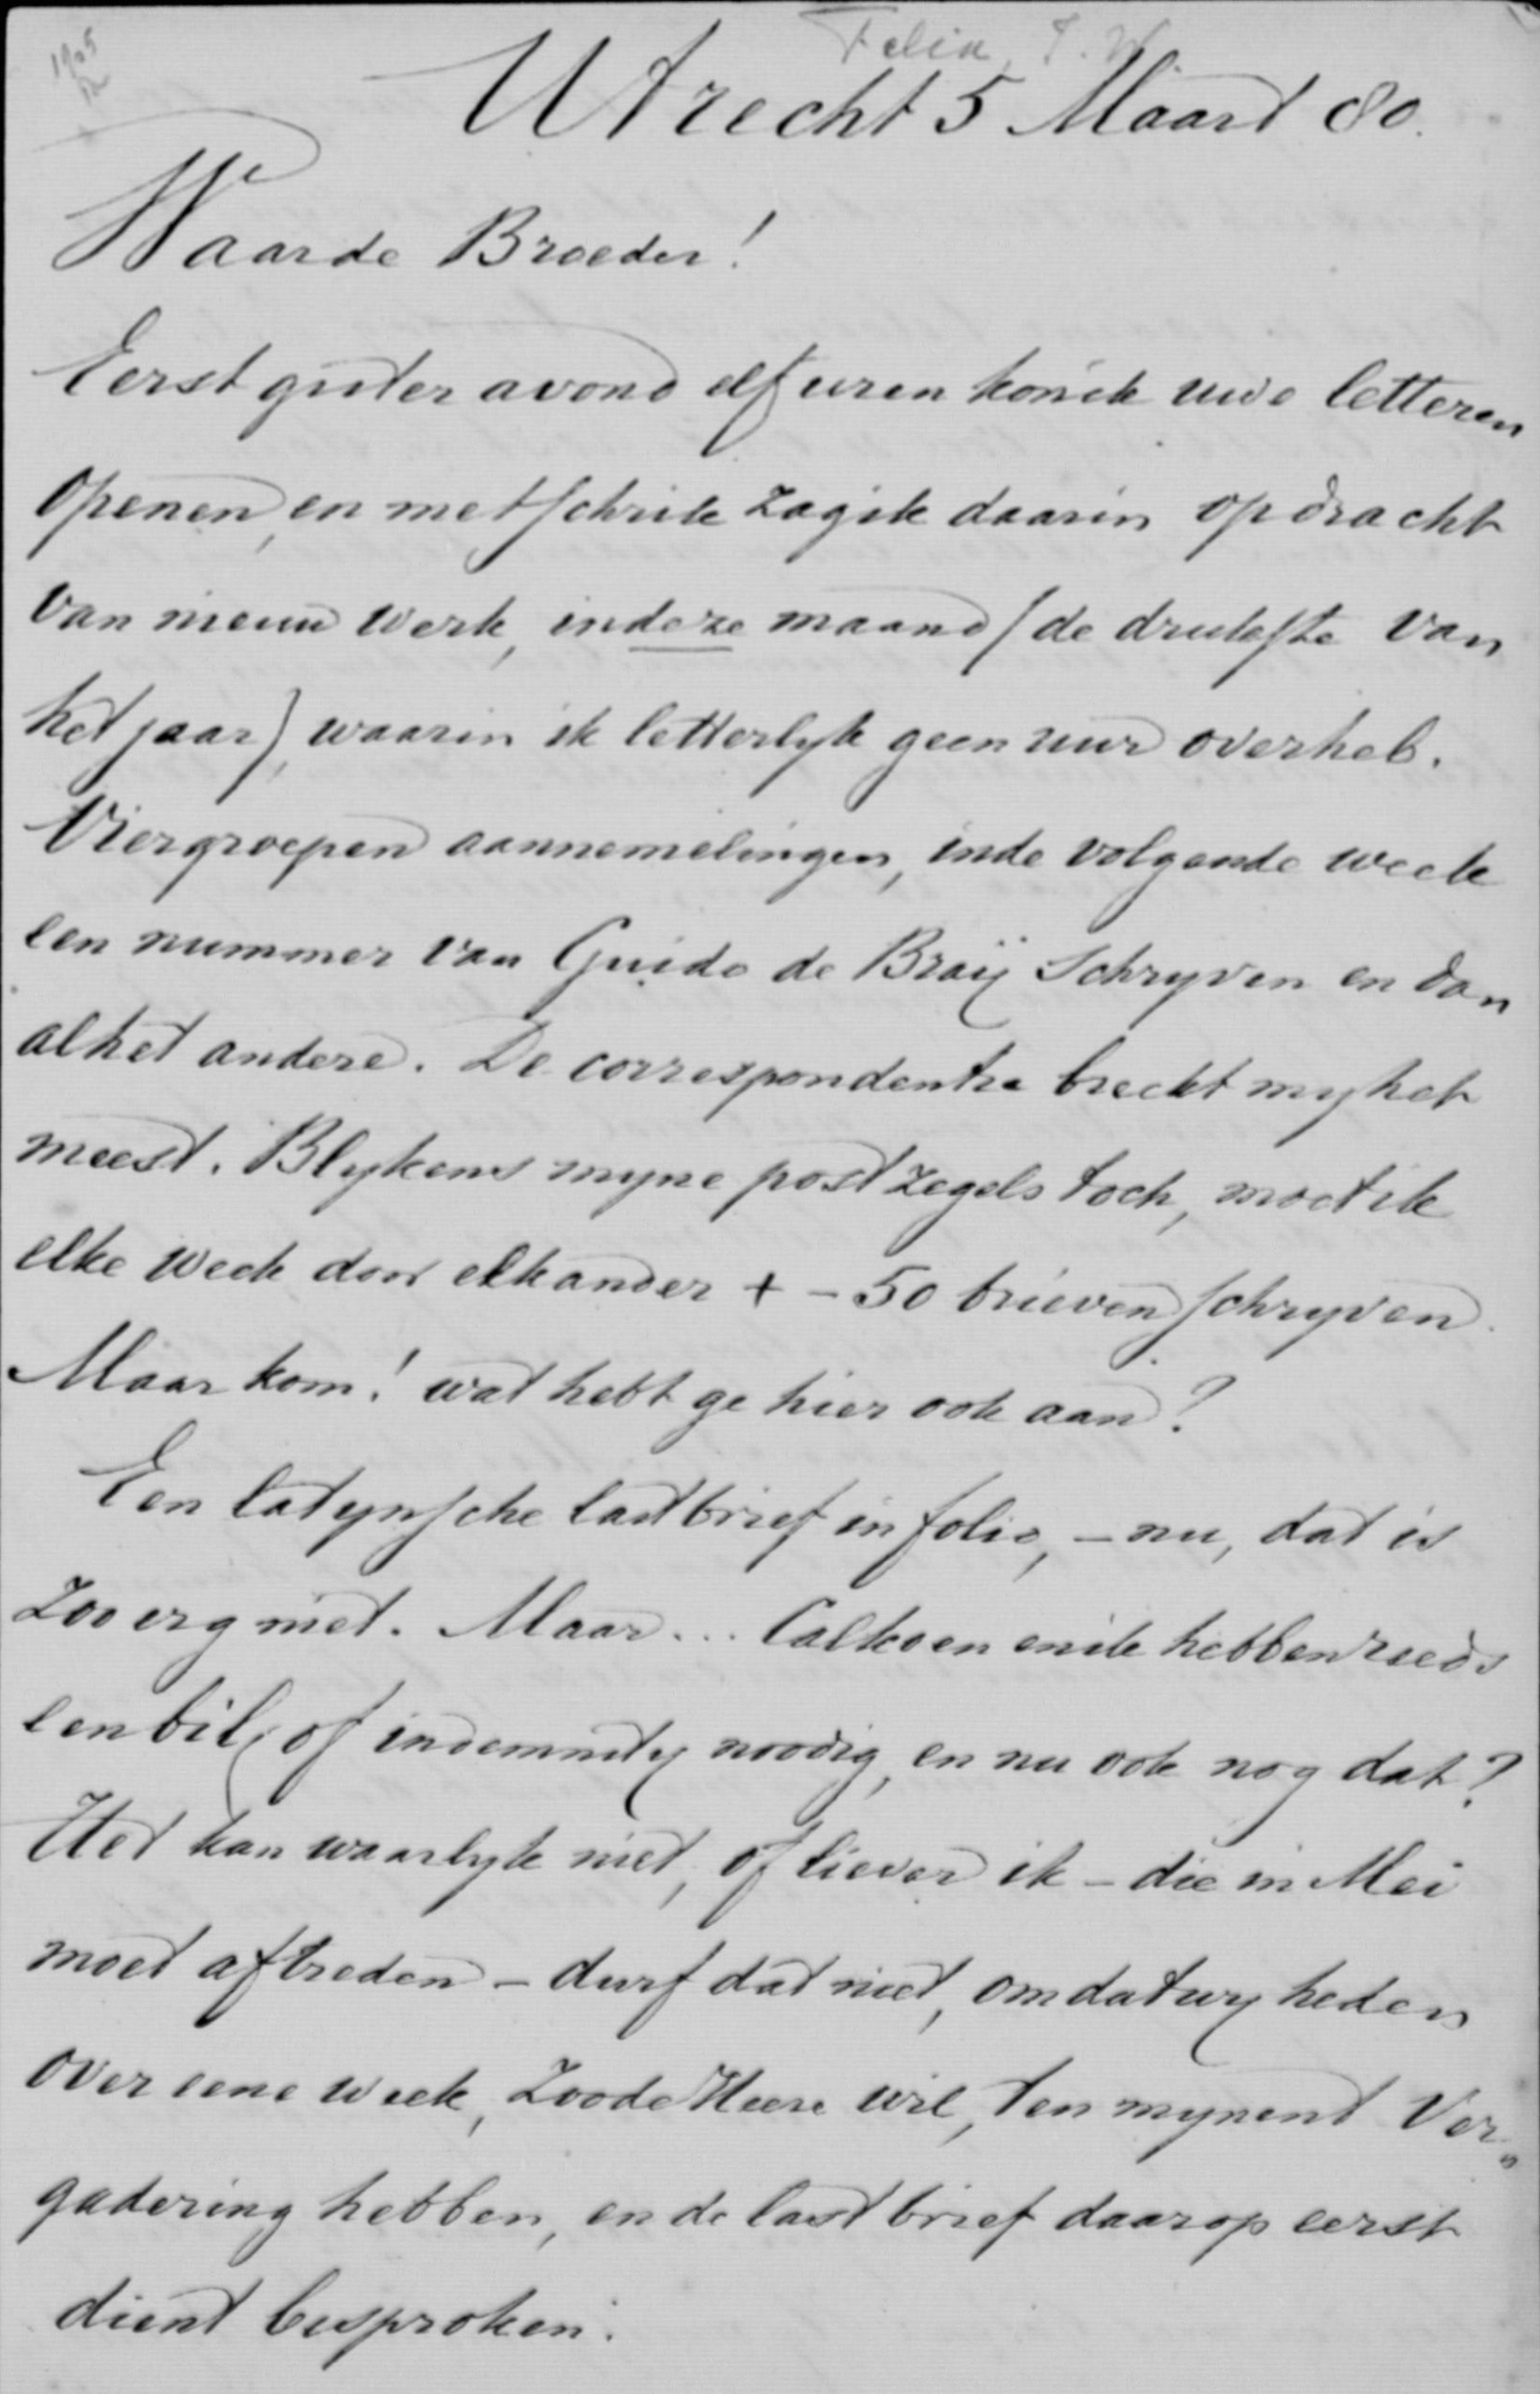 1905
Felix, J. W.
Utrecht 5 Maart 80.
Waarde Broeder!
Eerst gister avond elf uren kon ik uwe letteren
openen, en met schrik zag ik daarin opdracht
van nieuw werk, in deze maand (de drukste van
het jaar), waarin ik letterlyk geen uur overheb.
Vier groepen aannemelingen, in de volgende week
een nummer van Guido de Braÿ schryven en dan
al het andere. De correspondentie breekt my het
meest. Blykens myne postzegels toch, moet ik
elke week door elkander + - 50 brieven schryven.
Maar kom! wat hebt ge hier ook aan?
Een latynsche lastbrief in folio, - nu, dat is
zoo erg niet. Maar... Calkoen en ik hebben reeds
een bill of indemnity noodig, en nu ook nog dat?
Het kan waarlyk niet, of liever ik - die in Mei
moet aftreden - durf dat niet, omdat wy heden
over eene week, zoo de Heere wil, ten mynent Ver„
gadering hebben, en de lastbrief daarop eerst
dient besproken.